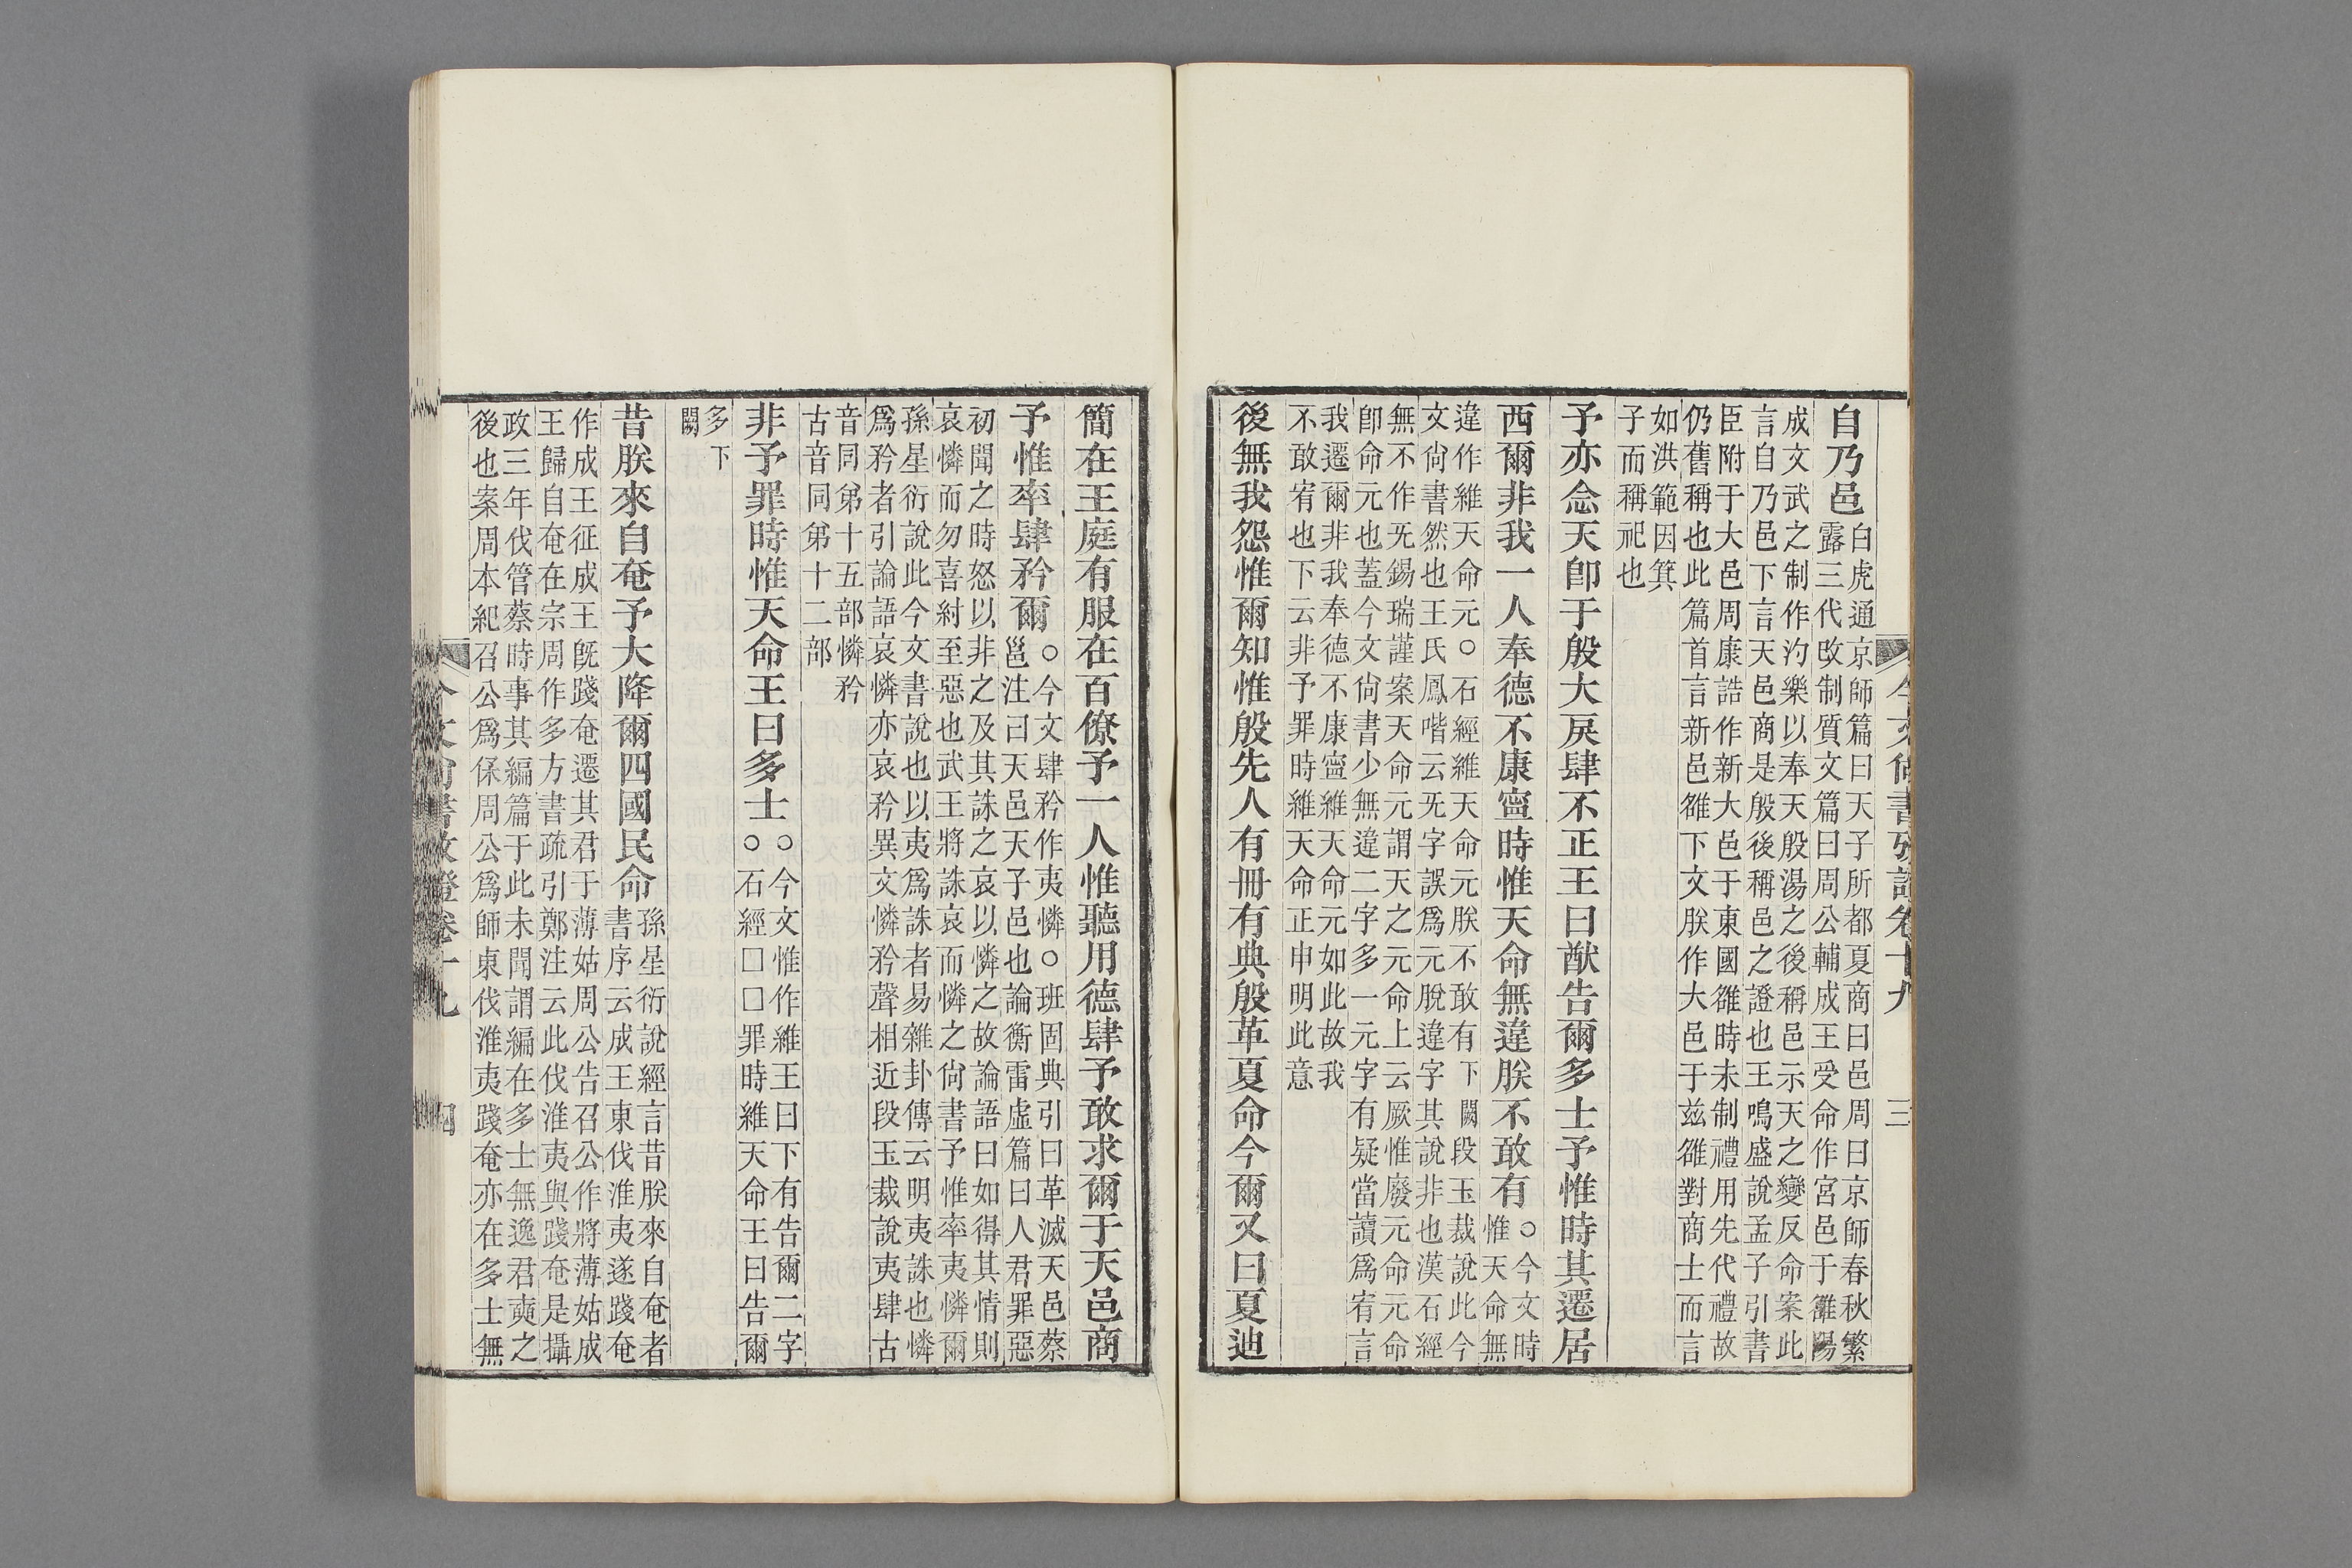 今文尚書攷證卷十九 三
自乃邑 白虎通京師篇曰天子所都夏商曰邑周曰京師春秋繁
露三代改制質文篇曰周公輔成王受命作宮邑于雒陽
成文武之制作汋樂以奉天殷湯之後稱邑示天之變反命案此
言自乃邑下言天邑商是殷後稱邑之證也王鳴盛說孟子引書
臣附于大邑周康誥作新大邑于東國雒時未制禮用先代禮故
仍舊稱也此篇首言新邑雒下文朕作大邑于兹雒對商士而言
如洪範因箕
子而稱祀也
予亦念天卽于殷大戾肆不正王曰猷告爾多士予惟時其遷居
西爾非我一人奉德不康寍時惟天命無違朕不敢有 ○今文時
惟天命無
違作維天命元○石經維天命元朕不敢有下闕段玉裁說此今
文尙書然也王氏鳳喈云旡字誤爲元脫違字其說非也漢石經
無不作旡錫瑞謹案天命元謂天之元命上云厥惟廢元命元命
卽命元也蓋今文尙書少無違二字多一元字有疑當讀爲宥言
我遷爾非我奉德不康寍維天命元如此故我
不敢宥也下云非予罪時維天命正申明此意
後無我怨惟爾知惟殷先人有冊有典殷革夏命今爾又曰夏迪
簡在王庭有服在百僚予一人惟聽用德肆予敢求爾于天邑商
予惟率肆矜爾 ○今文肆矜作夷憐○班固典引曰革滅天邑蔡
邕注曰天邑天子邑也論衡雷虛篇曰人君罪惡
初聞之時怒以非之及其誅之哀以憐之故論語曰如得其情則
哀憐而勿喜紂至惡也武王將誅哀而憐之尙書予惟率夷憐爾
孫星衍說此今文書說也以夷爲誅者易雜卦傳云明夷誅也憐
爲矜者引論語哀憐亦哀矜異文憐矜聲相近段玉裁說夷肆古
音同弟十五部憐矜
古音同弟十二部
非予罪時惟天命王曰多士 ○今文惟作維王曰下有告爾二字
○石經□□罪時維天命王曰告爾
多下
闕
昔朕來自奄予大降爾四國民命 孫星衍說經言昔朕來自奄者
書序云成王東伐淮夷遂踐奄
作成王征成王旣踐奄遷其君于薄姑周公告召公作將薄姑成
王歸自奄在宗周作多方書疏引鄭注云此伐淮夷與踐奄是攝
政三年伐管蔡時事其編篇于此未聞謂編在多士無逸君奭之
後也案周本紀召公爲保周公爲師東伐淮夷踐奄亦在多士無
今文尚書攷證卷十九 四